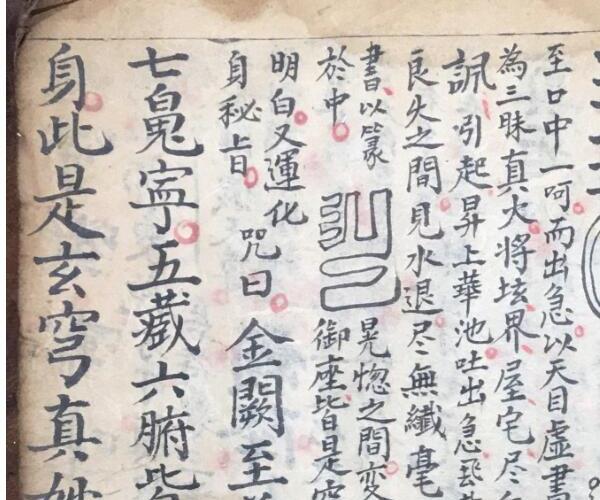 至口中一呵而出急以天目虛書
為三昧真火將垓界屋宅尽
諷引起昇上華池吐出急
良久之間見水退尽無纖毫
書以篆
於中
晃惚之間变
御座皆是
明白又運化
身秘旨咒曰金闕至
七䰟寍五藏六腑
身此是玄穹真